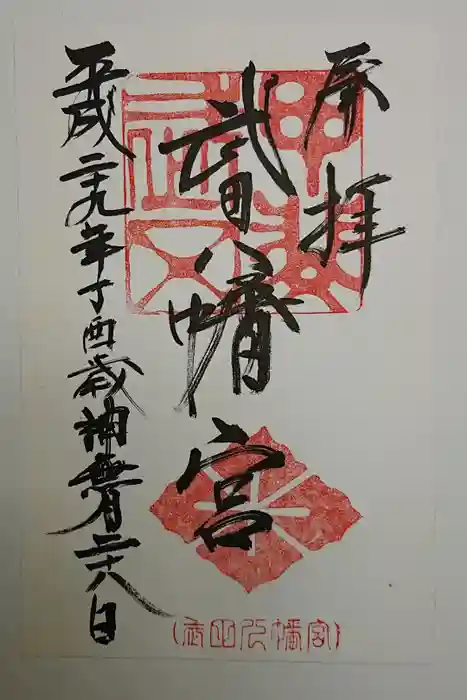 奉拝
武田八幡宮
平成二十九年丁酉歳神無月二十八日
武田八幡宮